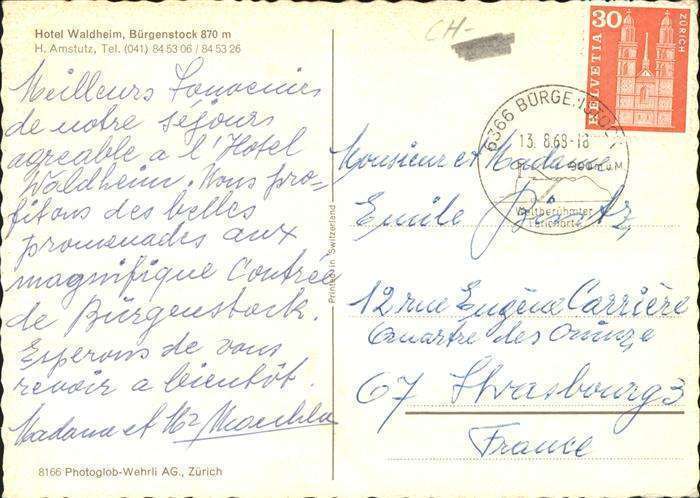 Hotel Waldheim, Bürgenstock 870 m
H. Amstutz, Tel. (041) 84 53 06 / 84 53 26
Meilleurs Souvenirs
de notre séjours
agreable a l'Hotel
Waldheim. Nous pro-
fitons des belles
promenades aux
magnifique Contrée
de Bürgenstock.
Esperons de vous
revoir a bientôt.
Madame et Mr
8166 Photoglob-Wehrli AG., Zürich
Printed in Switzerland
CH-
30
HELVETIA
ZÜRICH
6366 BÜRGENSTOCK
13.8.69-18
900 m ü.M
Weltberühmter
Ferienort
Monsieur et Madame
Emile
12 rue Eugène Carrière
Quartre des
67 Strasbourg 3
France